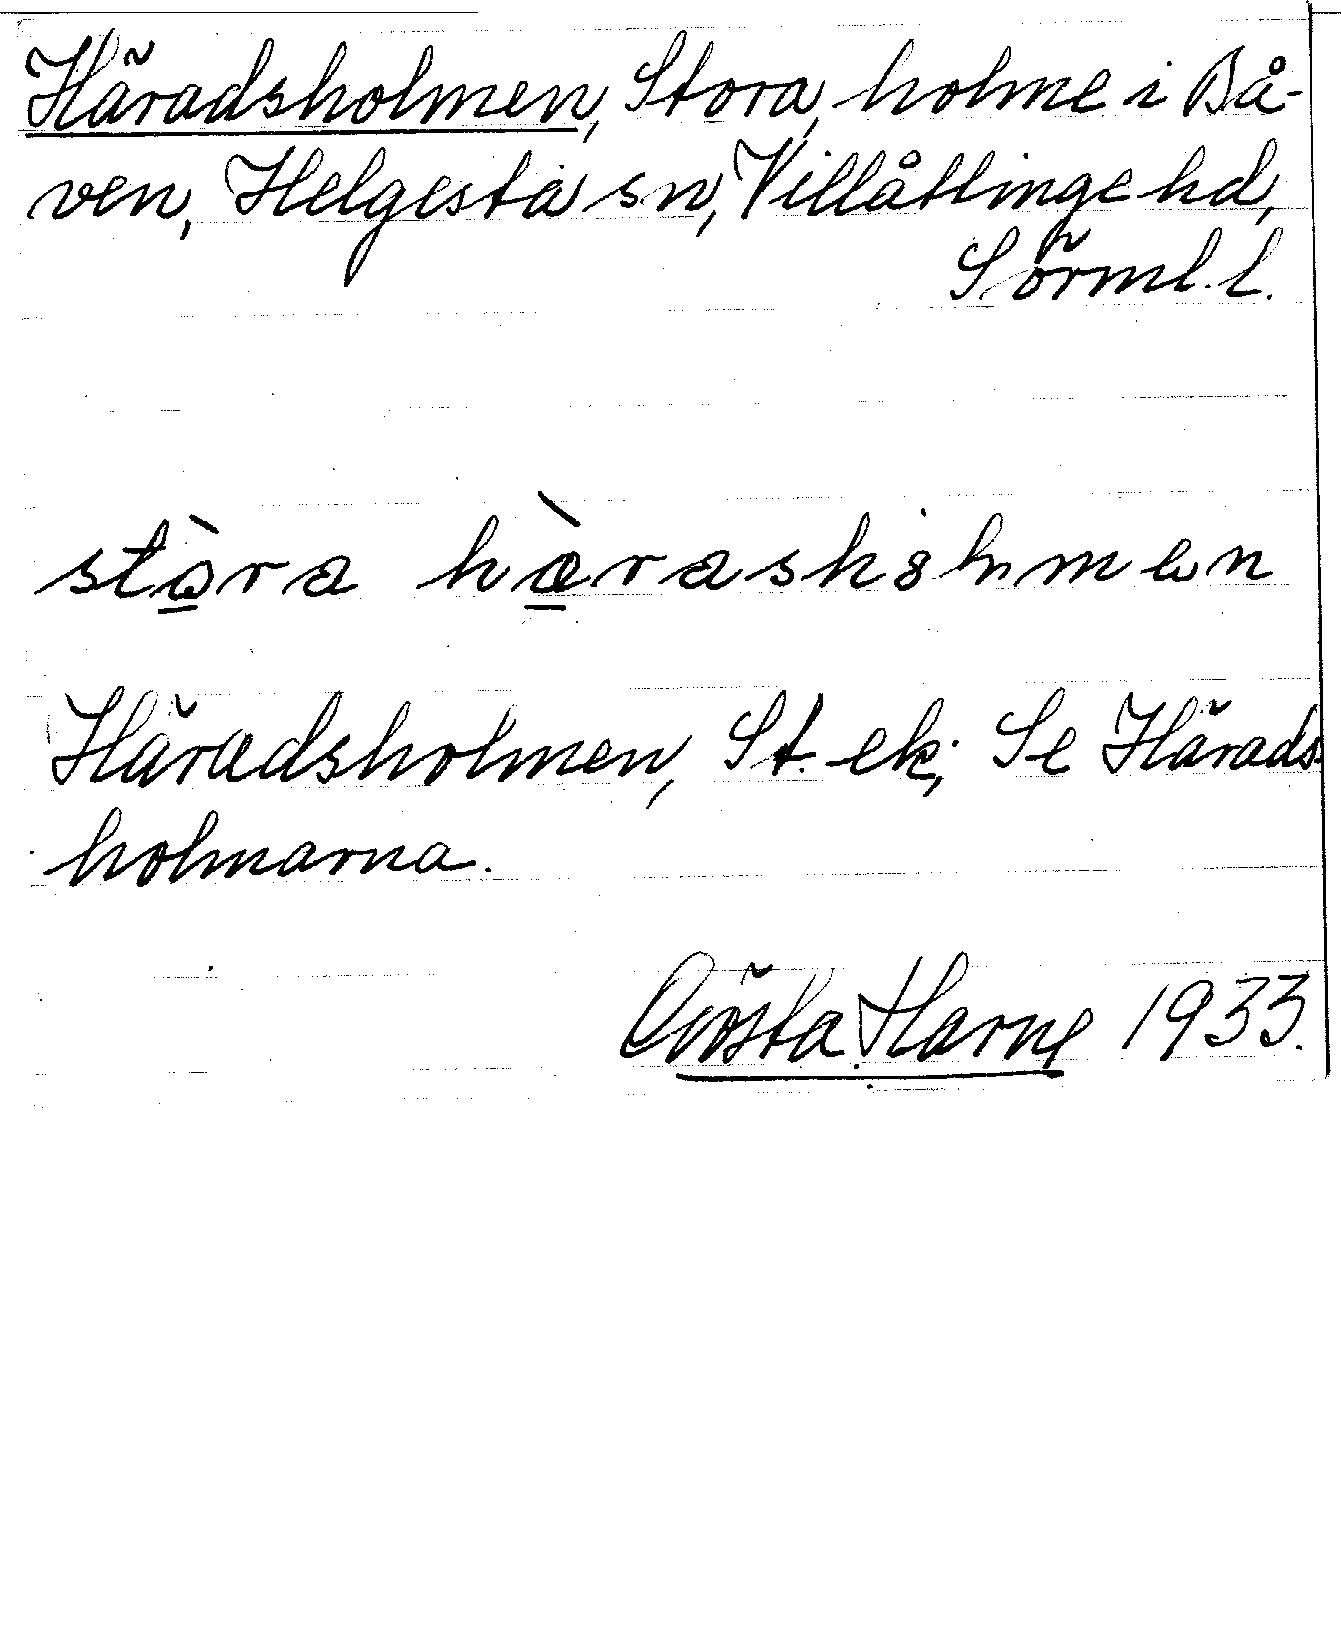 Häradsholmen, Stora, holme i Bå-
ven, Helgesta sn, Villåttinge hd,
Sörml. l.
stòra hæ̀rashålmen
Häradsholmen, St. ek; Se Härads-
holmarna.
Gösta Harne 1933.